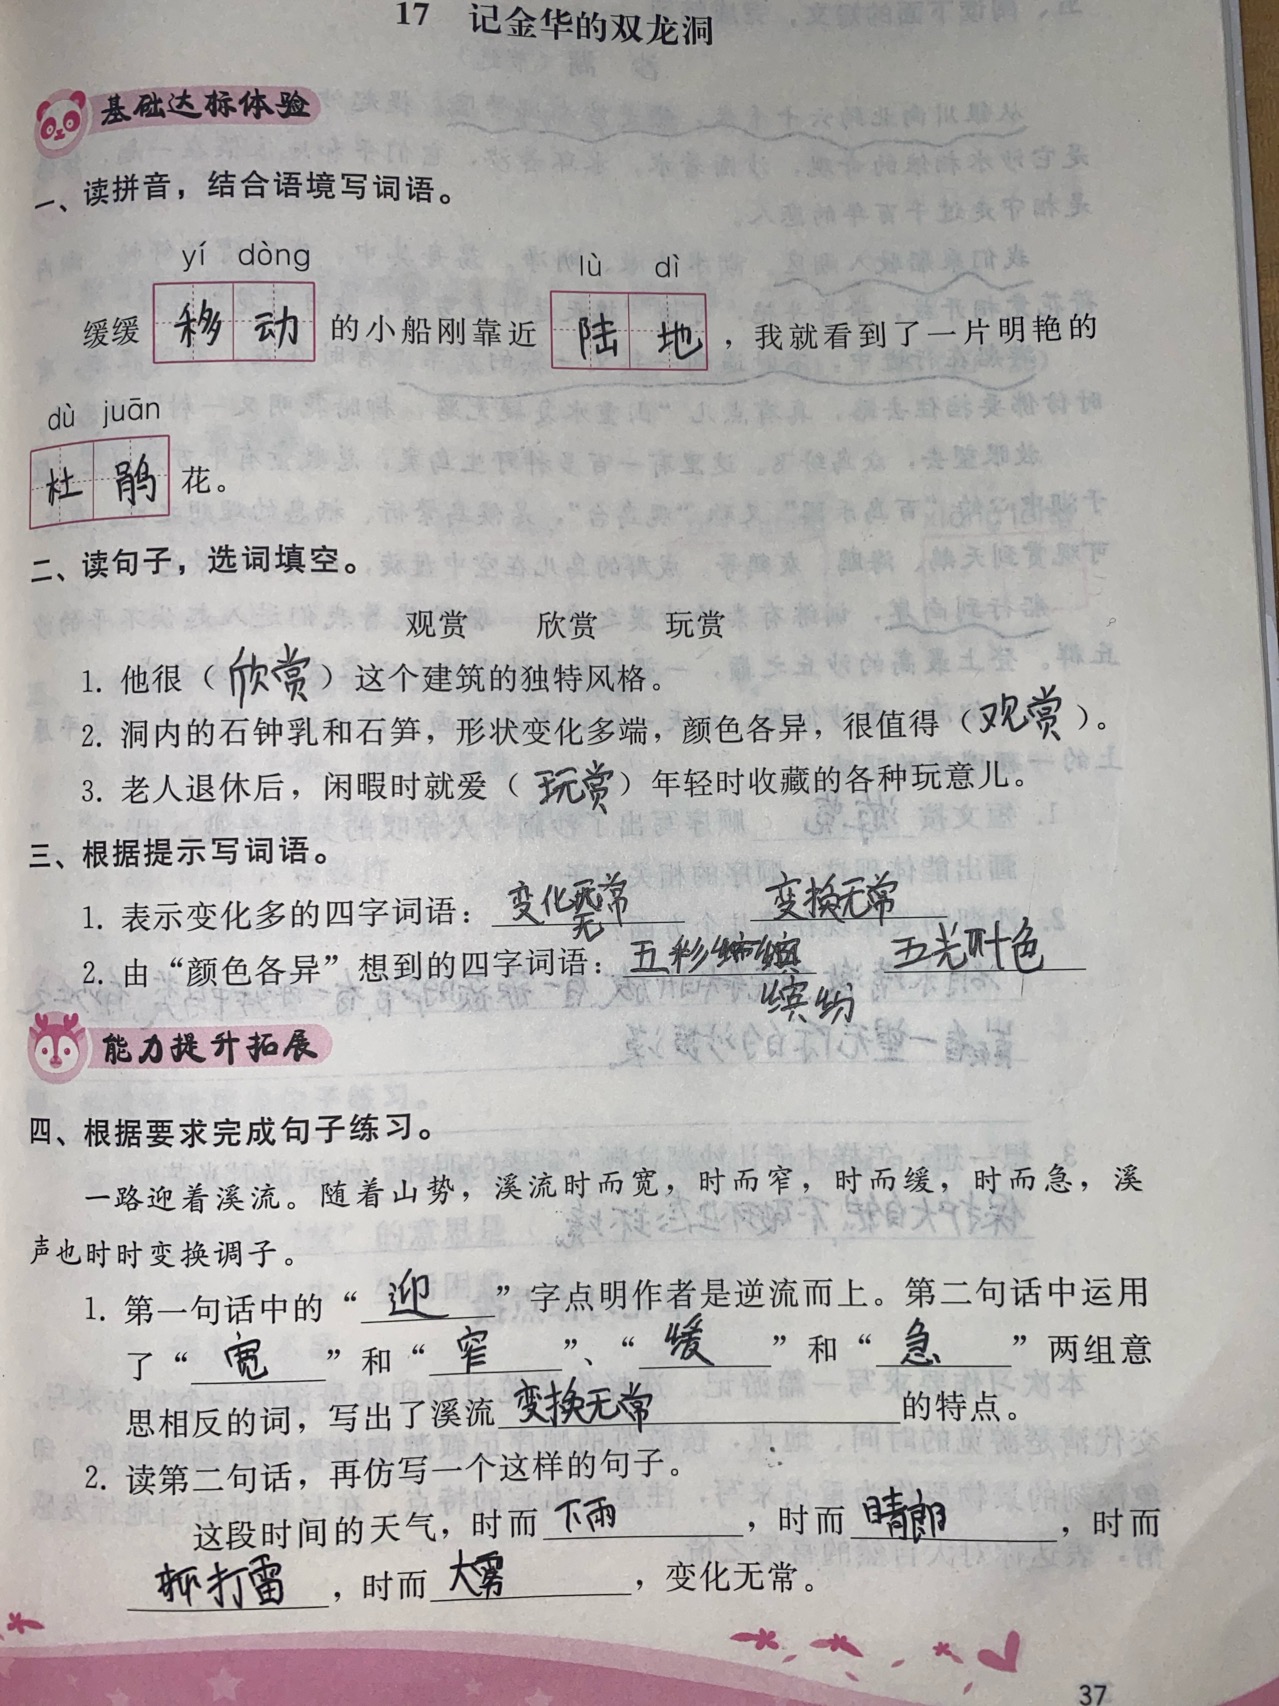 17 记金华的双龙洞
基础达标体验
一、读拼音，结合语境写词语。
yí dòng lù dì
缓缓 移动 的小船刚靠近 陆地 ，我就看到了一片明艳的
dù juān
杜鹃 花。
二、读句子，选词填空。
观赏 欣赏 玩赏
1. 他很（欣赏）这个建筑的独特风格。
2. 洞内的石钟乳和石笋，形状变化多端，颜色各异，很值得（观赏）。
3. 老人退休后，闲暇时就爱（玩赏）年轻时收藏的各种玩意儿。
三、根据提示写词语。
1. 表示变化多的四字词语：变化无常 变换无常
2. 由“颜色各异”想到的四字词语：五彩缤纷 五光叶色
缤纷
能力提升拓展
四、根据要求完成句子练习。
一路迎着溪流。随着山势，溪流时而宽，时而窄，时而缓，时而急，溪
声也时时变换调子。
1. 第一句话中的“迎”字点明作者是逆流而上。第二句话中运用
了“宽”和“窄”、“缓”和“急”两组意
思相反的词，写出了溪流变换无常的特点。
2. 读第二句话，再仿写一个这样的句子。
这段时间的天气，时而下雨，时而晴朗，时而
打雷，时而大雾，变化无常。
37